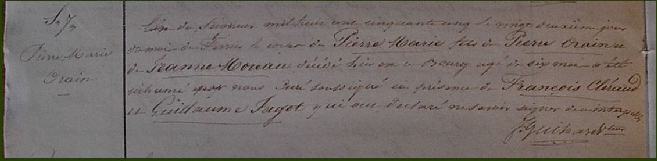 S. 7.
Pierre Marie
Orain
L'an du Seigneur mil huit cent cinquante cinq le vingt deuxième jour
du mois de le corps de Pierre Marie fils de Pierre Orain et
de Jeanne Moreau décédé hier en ce Bourg agé de six mois a été
inhumé par nous Curé soussigné en présence de François Cléraud
et Guillaume Fagot qui ont déclaré ne savoir signer
J Guihard